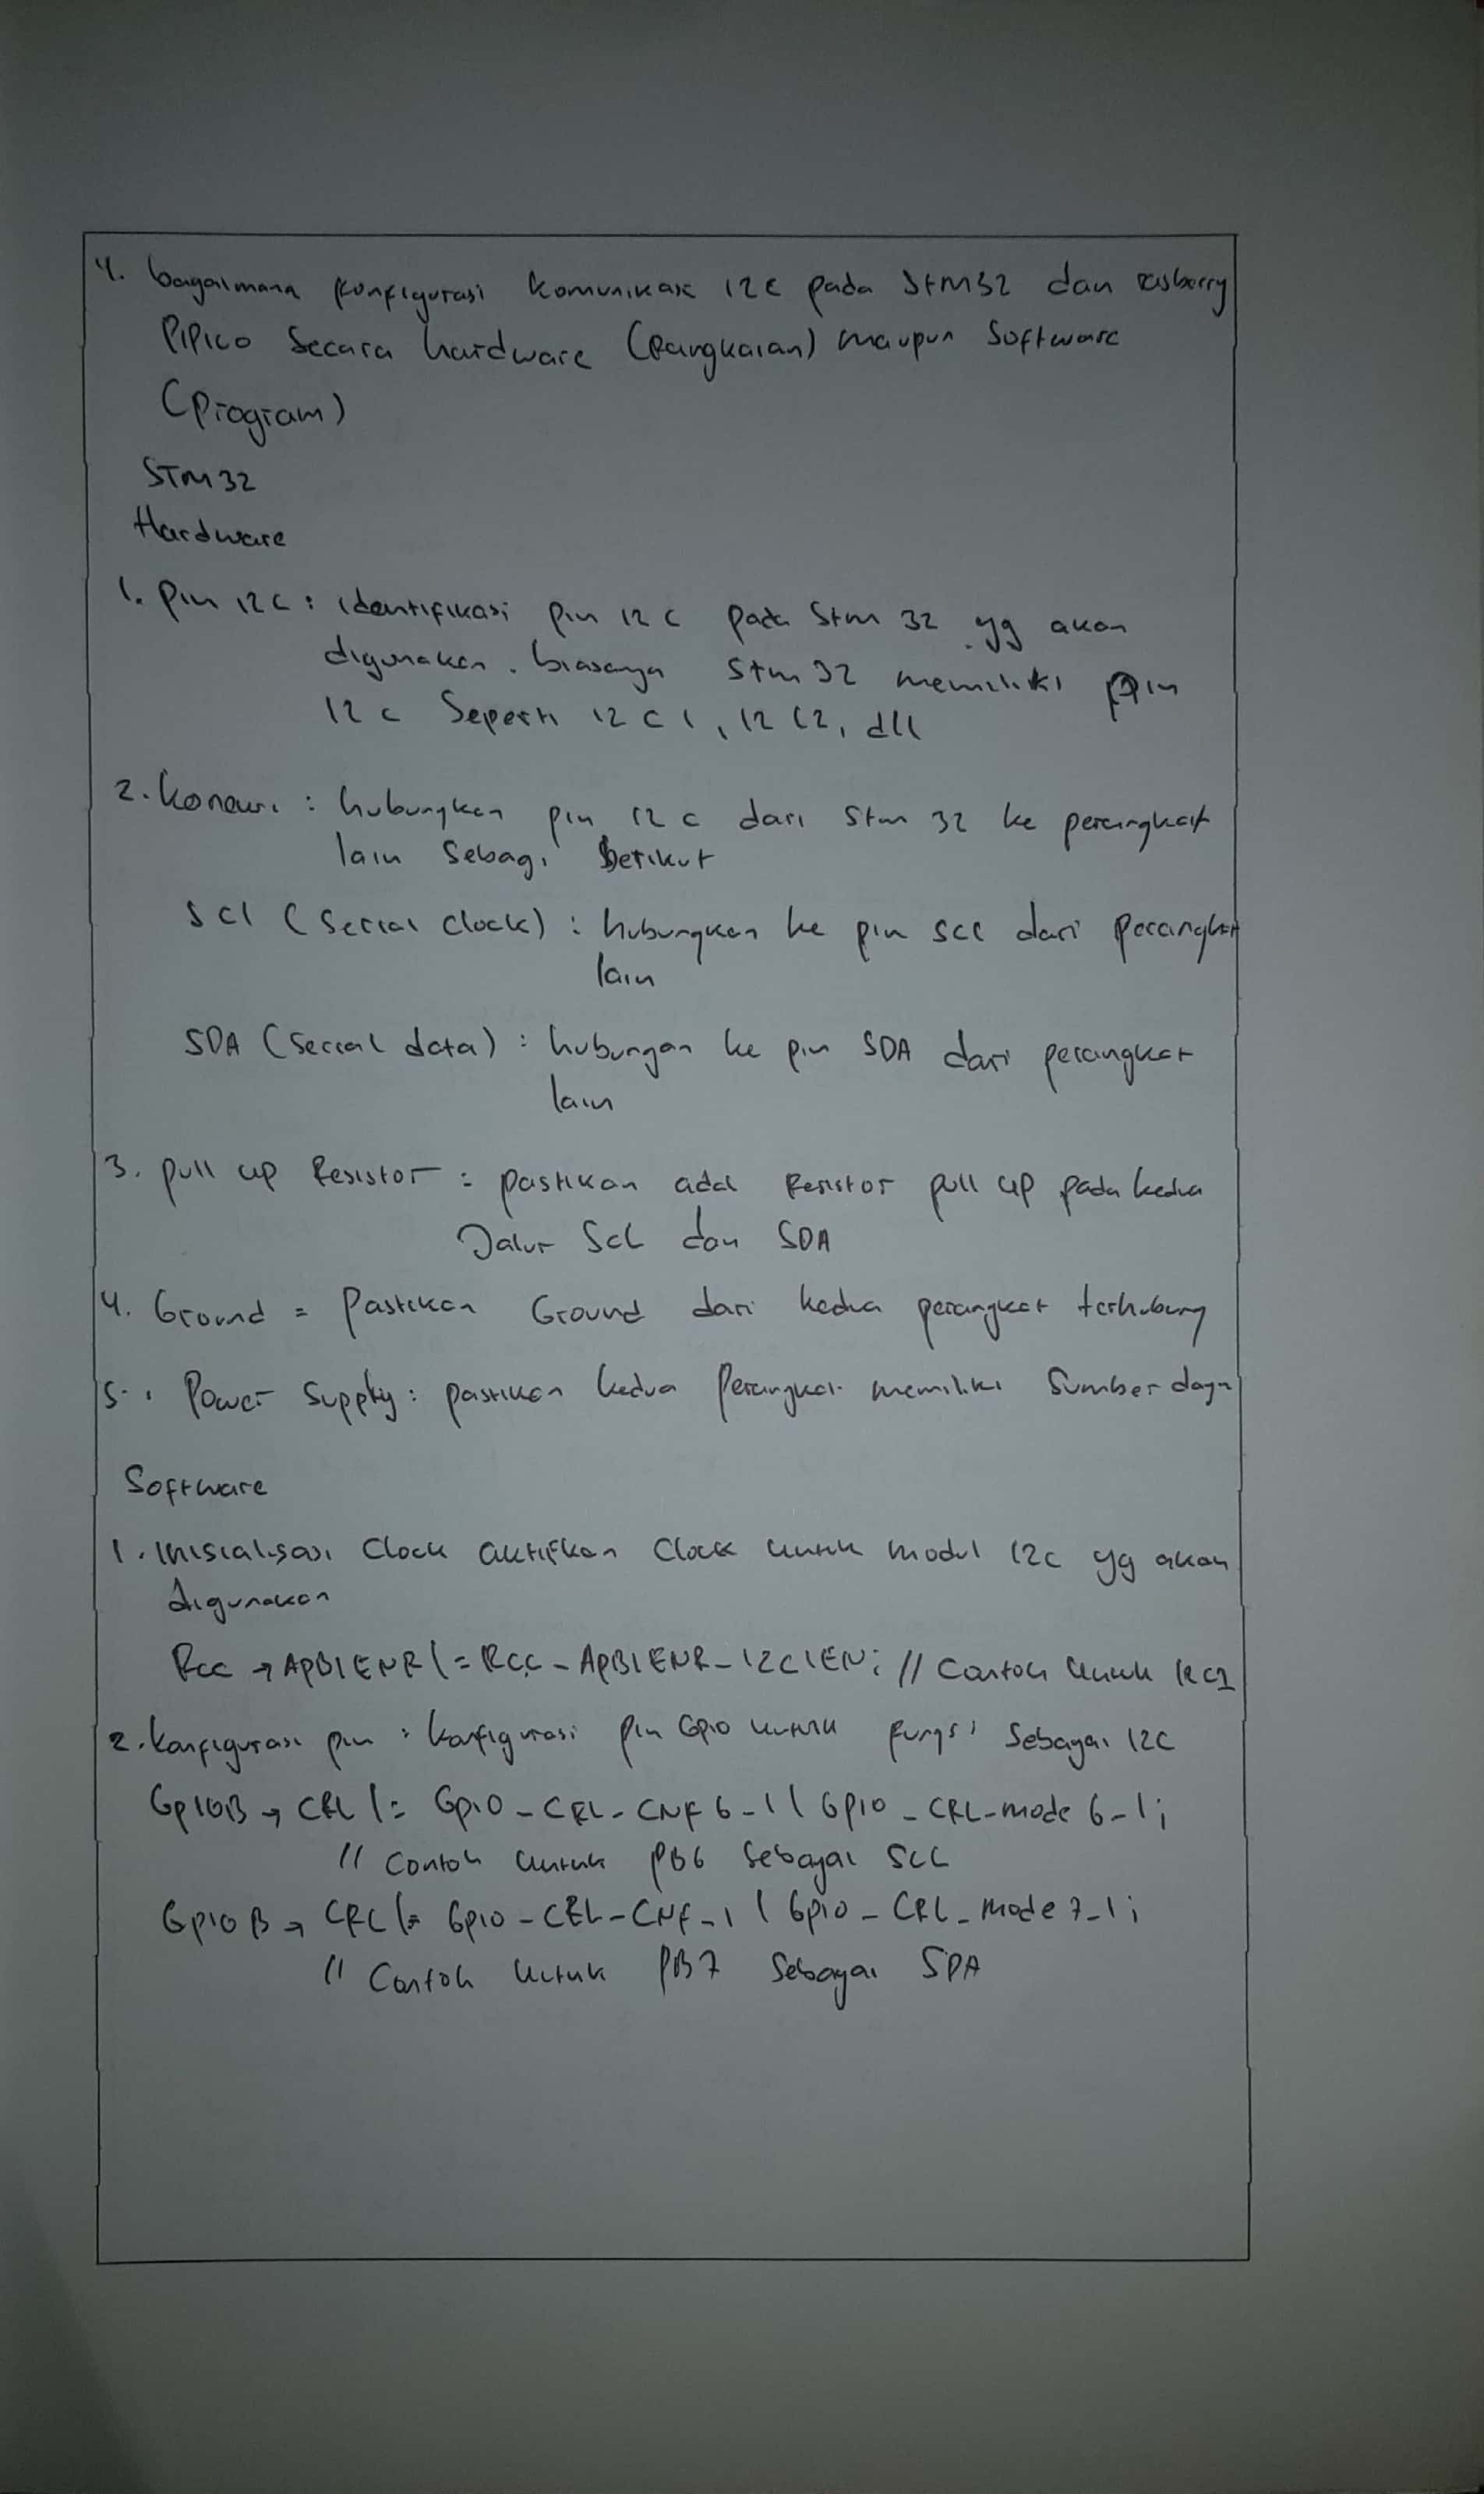 4. bagaimana konfigurasi komunikasi I2C pada STM32 dan rasberry
PiPico Secara hardware (Rangkaian) maupun Software
(Program)
STM 32
Hardware
1. Pin I2C : identifikasi pin I2C pada Stm 32 yg akan
digunakan. biasanya Stm 32 memiliki pin
I2C Seperti I2C1, I2C2, dll
2. Koneksi : hubungkan pin I2C dari Stm 32 ke perangkat
lain Sebagi berikut
SCl (Serial Clock) : hubungkan ke pin SCL dari perangkat
lain
SDA (Serial data) : hubungan ke pin SDA dari perangkat
lain
3. Pull up Resistor : pastikan ada Resistor pull up pada kedua
Jalur SCL dan SDA
4. Ground = Pastikan Ground dari kedua perangkat terhubung
5. Power Supply : pastikan kedua Perangkat memiliki Sumber daya
Software
1. Inisialisasi Clock aktifkan Clock untuk modul I2C yg akan
digunakan
RCC → APB1ENR |= RCC_APB1ENR_I2C1EN; // Contoh untuk I2C1
2. Konfigurasi pin : Konfigurasi pin Gpio untuk fungsi Sebagai I2C
GpIOB → CRL |= GpIO_CRL_CNF6_1 | GpIO_CRL_mode6_1;
// Contoh untuk PB6 Sebagai SCL
GpIO B → CRL |= GpIO_CRL_CNF_1 | GpIO_CRL_Mode7_1;
// Contoh Untuk PB7 Sebagai SDA